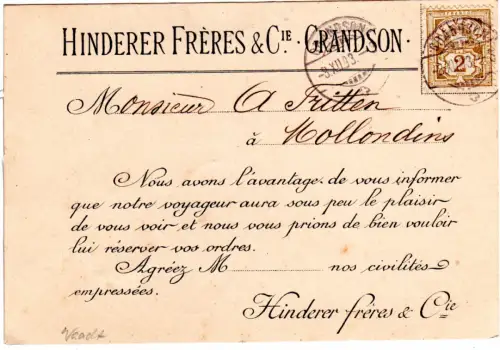 HINDERER FRÈRES & CIE · GRANDSON ·
GRANDSON
-8.XII.03.
2
Monsieur A Tritten
à Mollondins
Nous avons l'avantage de vous informer
que notre voyageur aura sous peu le plaisir
de vous voir et nous vous prions de bien vouloir
lui réserver vos ordres.
Agréez M nos civilités
empressées.
Hinderer frères & Cie
Vaadt